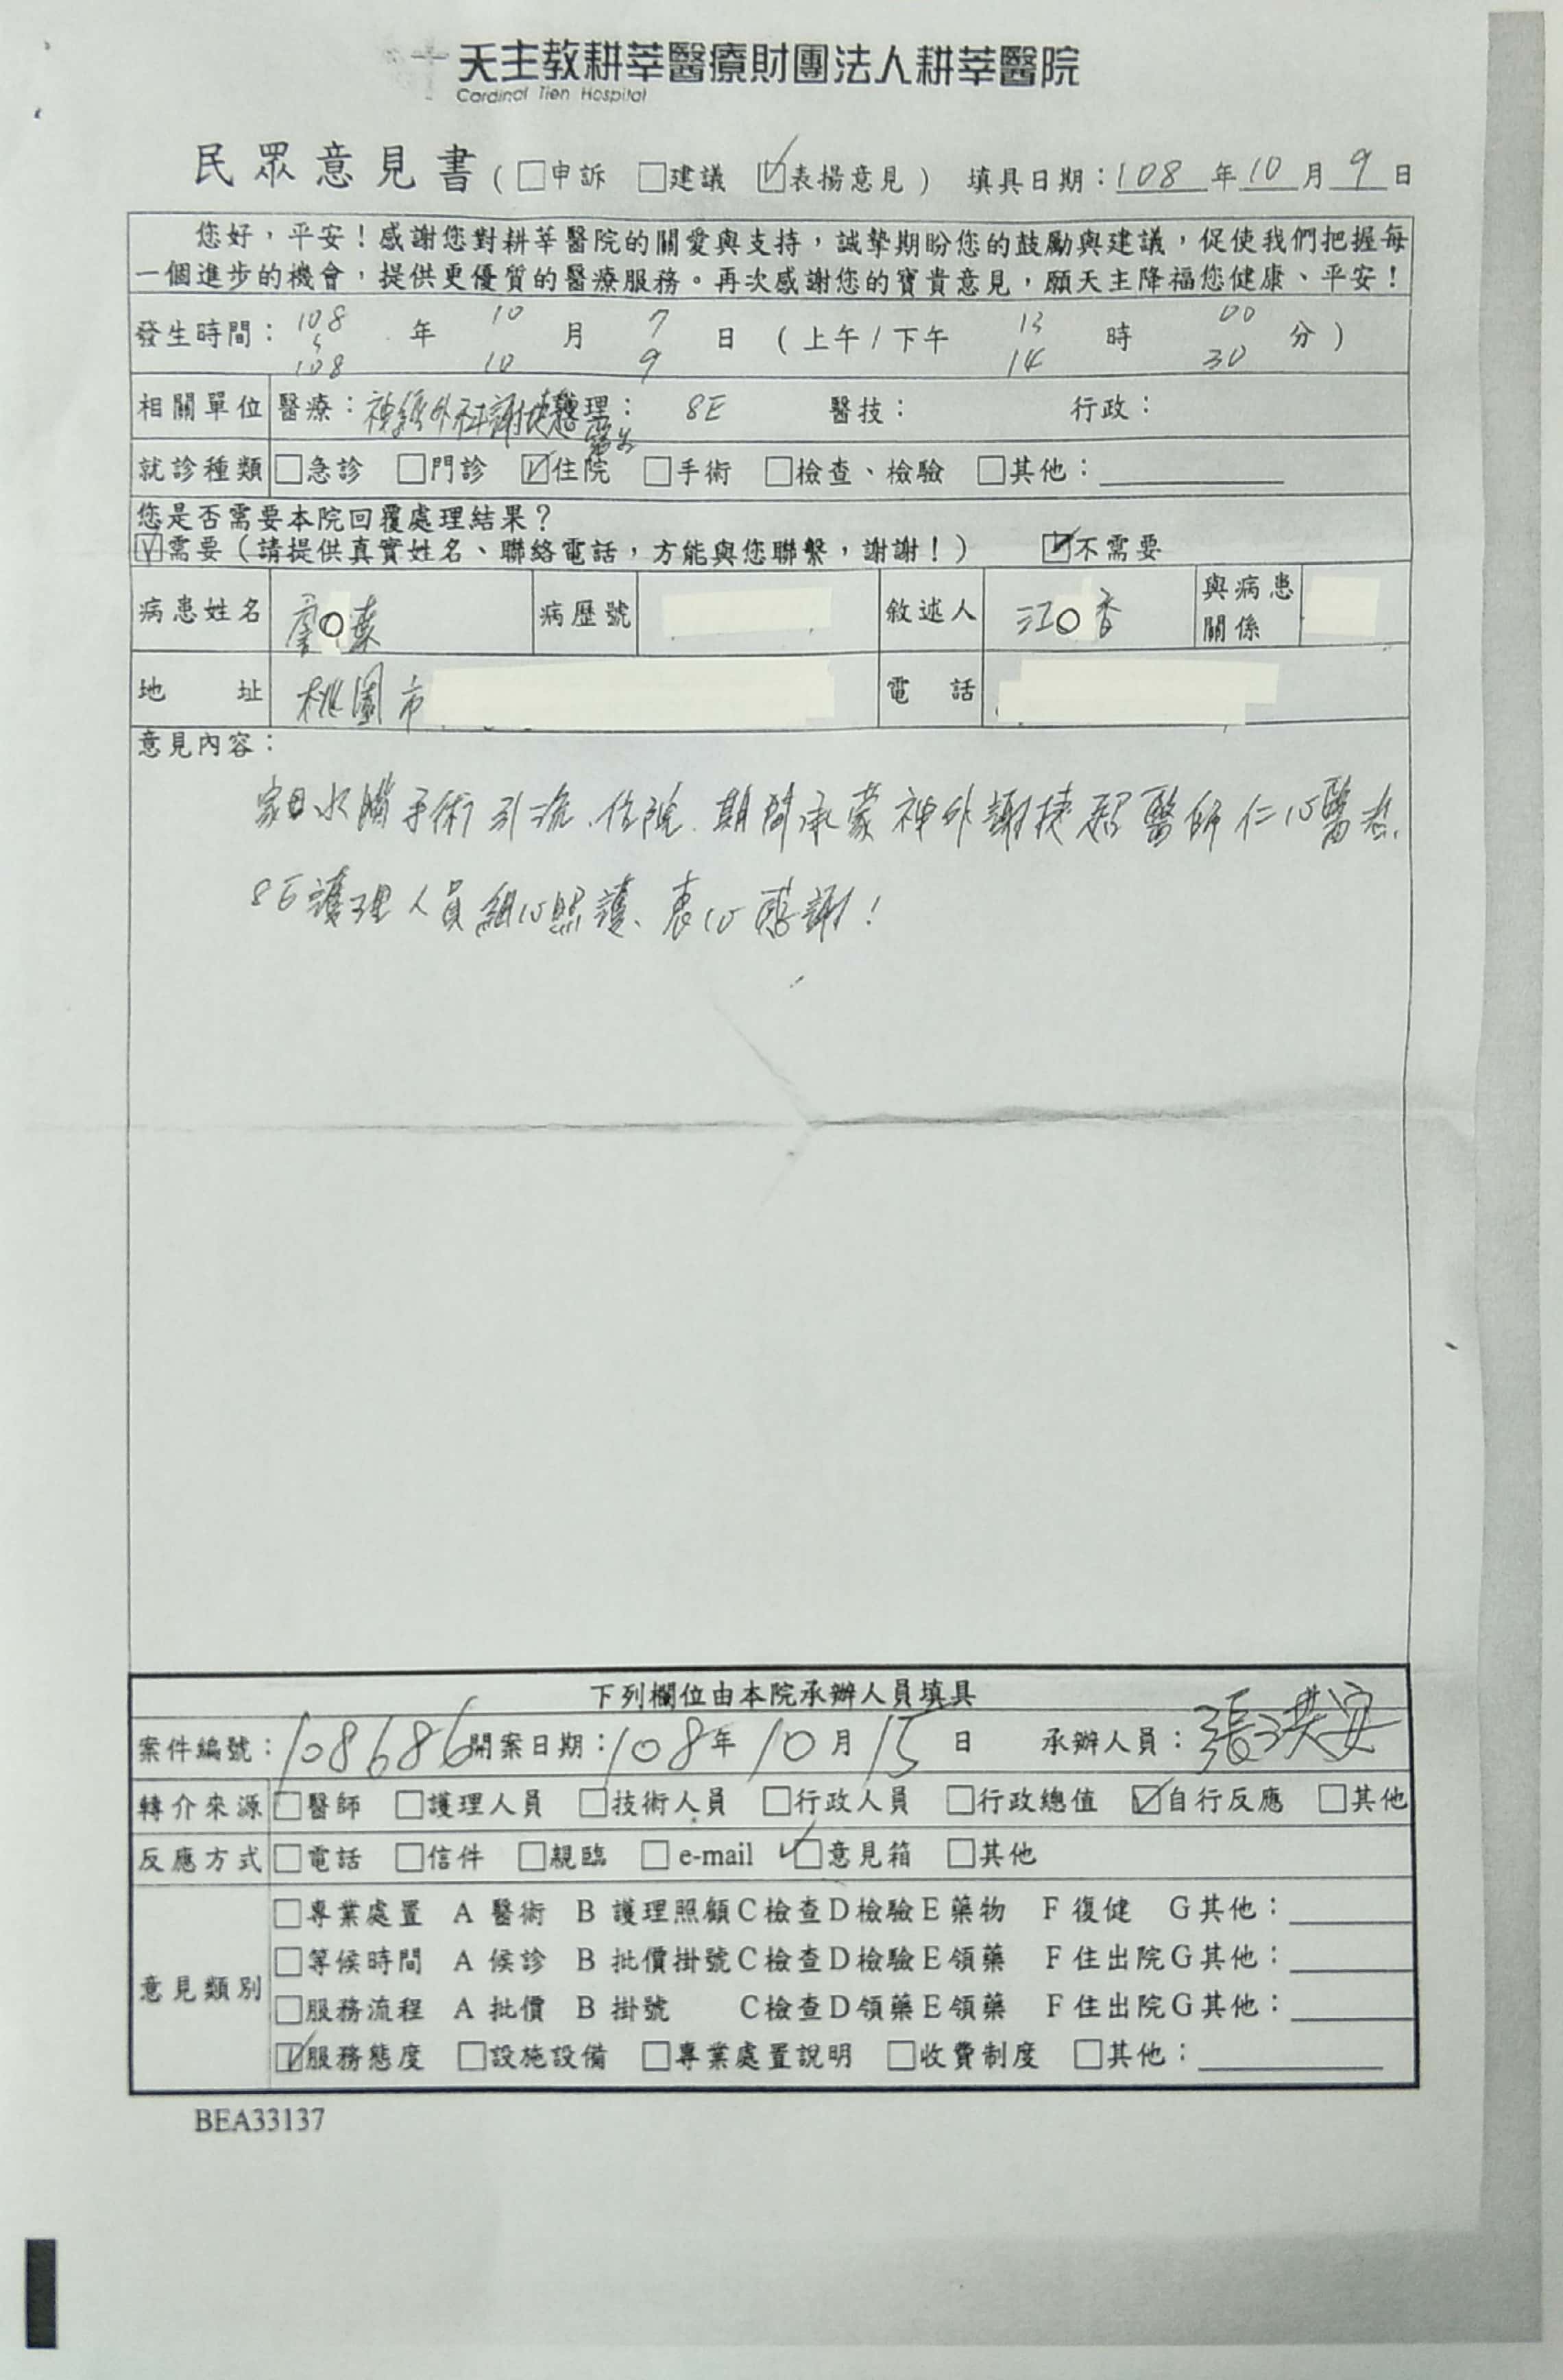 天主教耕莘醫療財團法人耕莘醫院
Cardinal Tien Hospital
民眾意見書(□申訴 □建議 ☑表揚意見) 填具日期:108年10月9日
您好,平安!感謝您對耕莘醫院的關愛與支持,誠摯期盼您的鼓勵與建議,促使我們把握每
一個進步的機會,提供更優質的醫療服務。再次感謝您的寶貴意見,願天主降福您健康、平安!
發生時間:108年10月7日(上午/下午13時00分)
108 10 9 14 30
相關單位 醫療:神經外科謝捷超醫師 護理:8E 醫技: 行政:
就診種類 □急診 □門診 ☑住院 □手術 □檢查、檢驗 □其他:
您是否需要本院回覆處理結果?
☑需要(請提供真實姓名、聯絡電話,方能與您聯繫,謝謝!) ☑不需要
病患姓名 廖○葉 病歷號 敘述人 江○香 與病患關係
地址 桃園市 電話
意見內容:
家母水腦手術引流、住院、期間承蒙神外謝捷超醫師仁心醫
8E護理人員細心照護、衷心感謝!
下列欄位由本院承辦人員填具
案件編號:108686 開案日期:108年10月15日 承辦人員:張洪安
轉介來源 □醫師 □護理人員 □技術人員 □行政人員 □行政總值 ☑自行反應 □其他
反應方式 □電話 □信件 □親臨 □e-mail ☑意見箱 □其他
意見類別
□專業處置 A 醫術 B 護理照顧 C檢查 D檢驗 E藥物 F復健 G其他:
□等候時間 A 候診 B 批價掛號 C檢查 D檢驗 E領藥 F住出院 G其他:
□服務流程 A 批價 B 掛號 C檢查 D領藥 E領藥 F住出院 G其他:
☑服務態度 □設施設備 □專業處置說明 □收費制度 □其他:
BEA33137